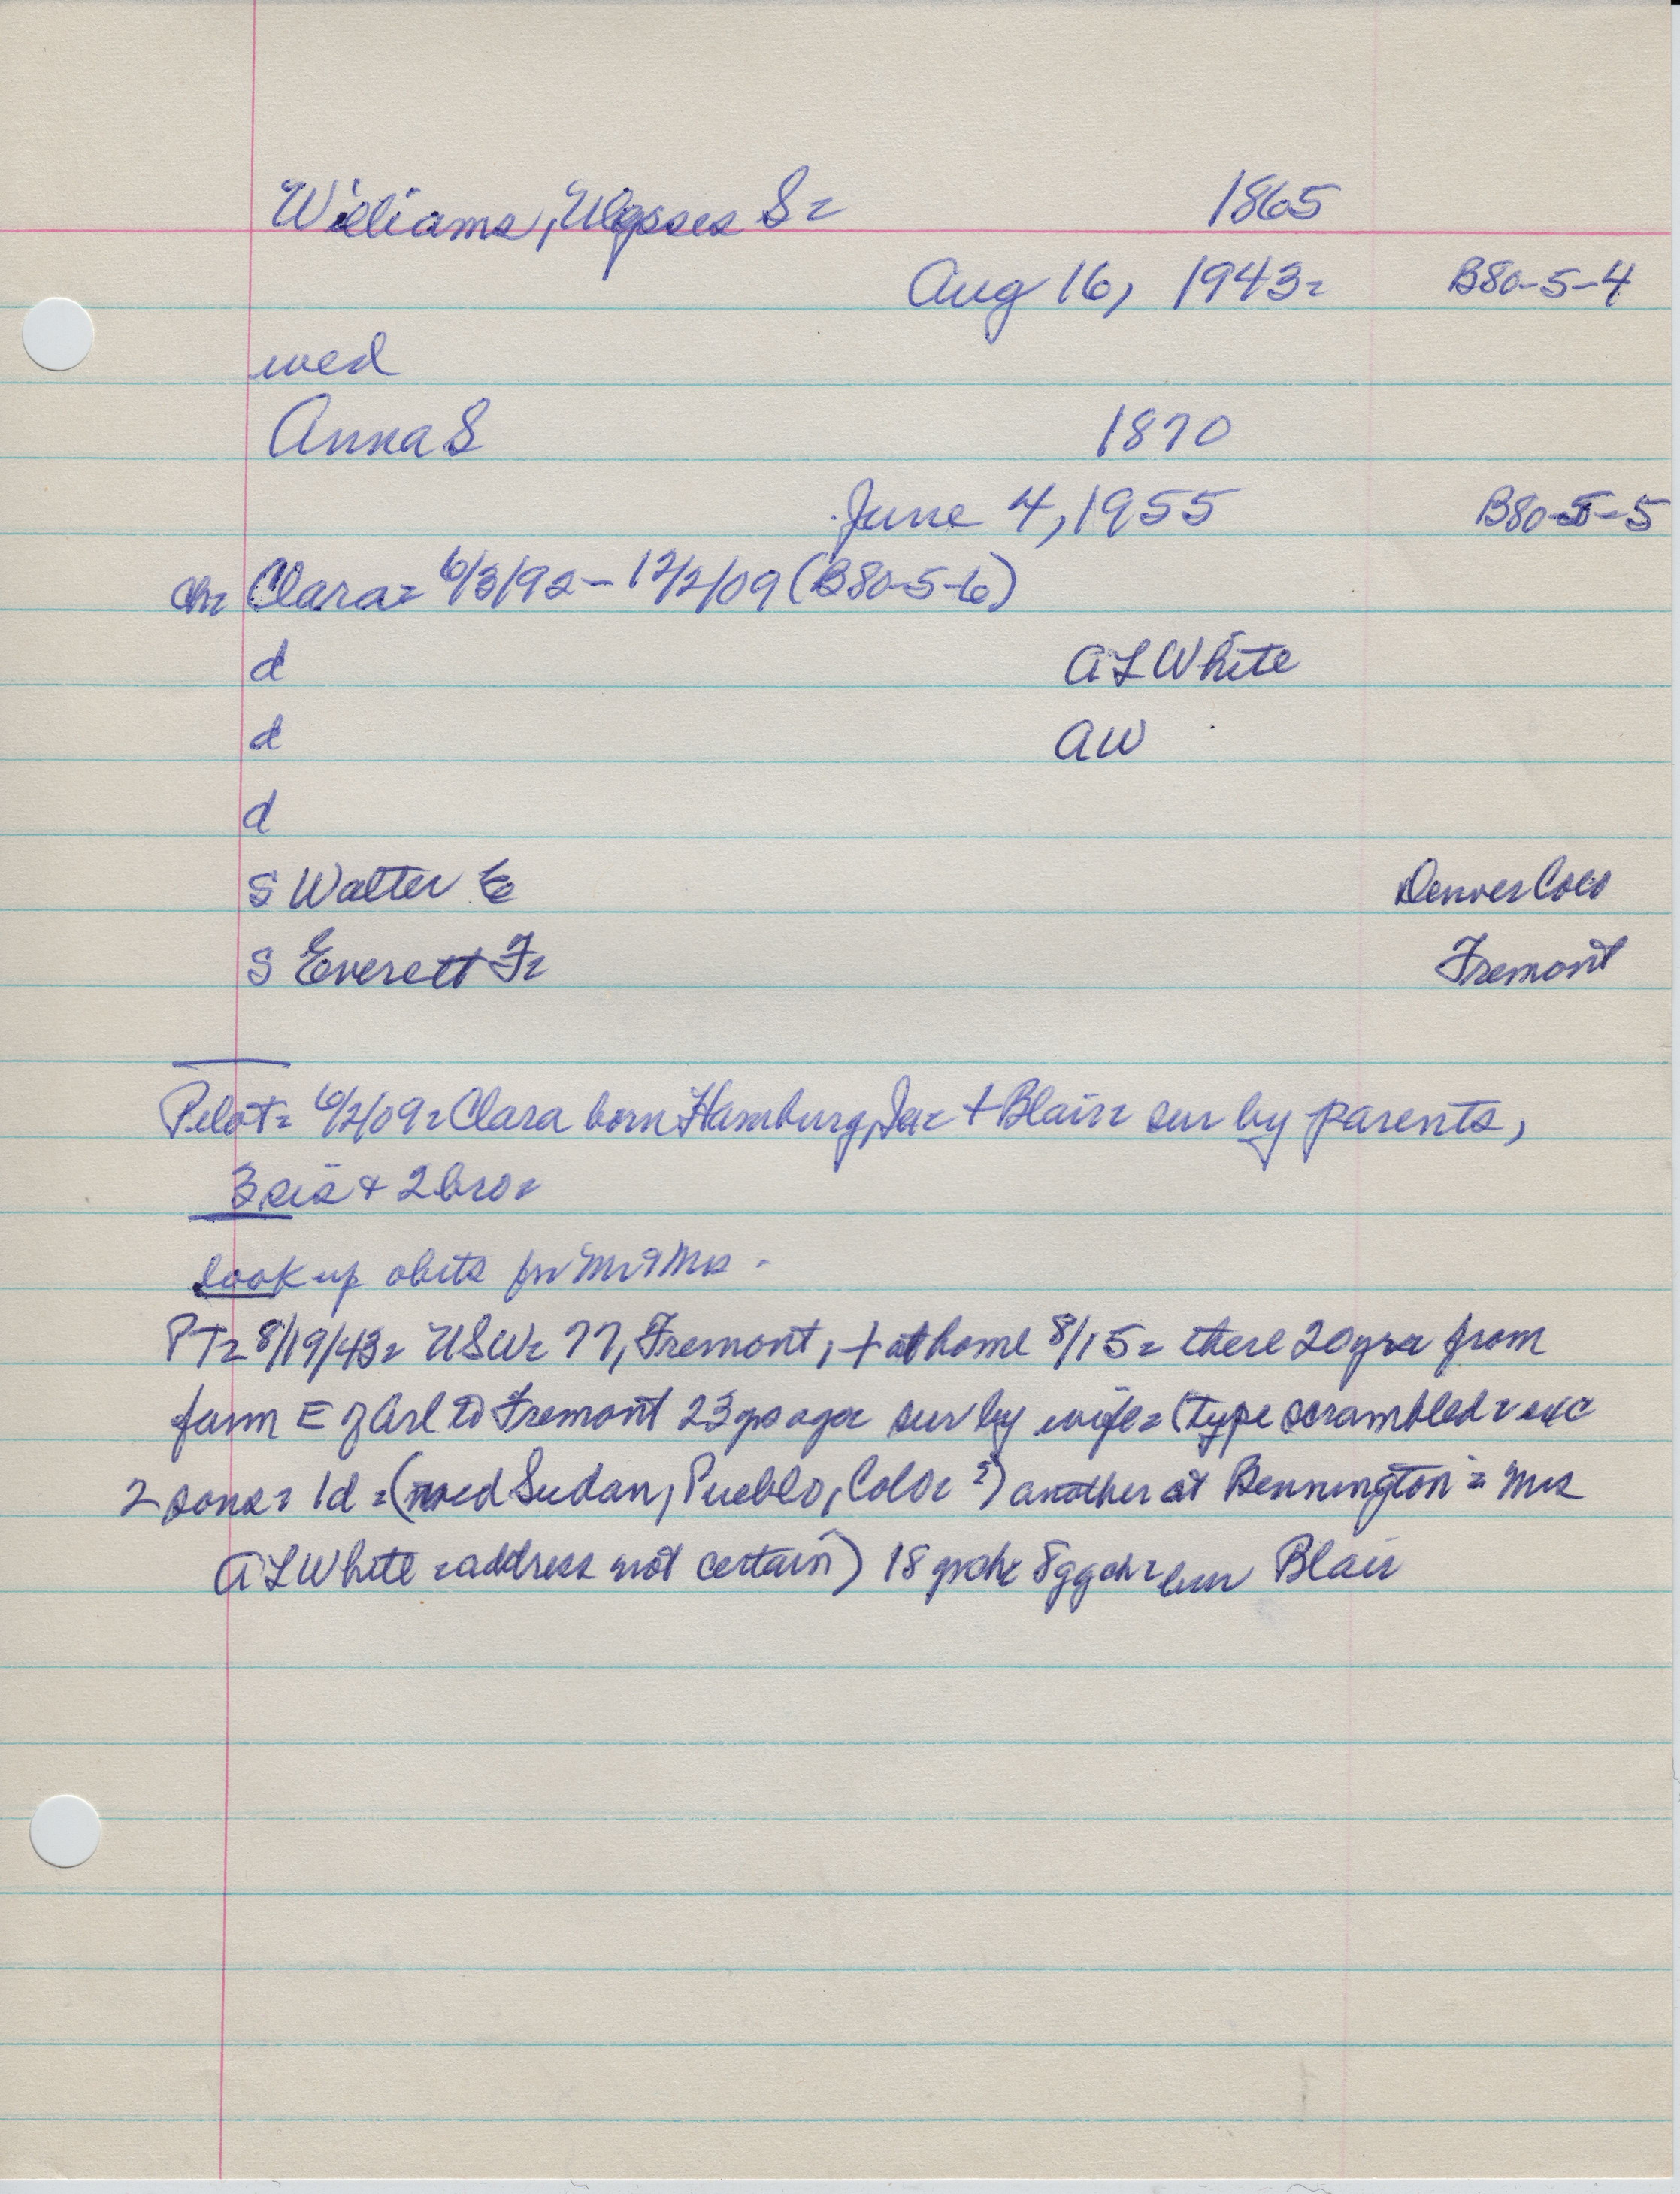 Williams, Ulysses S= 1865
Aug 16, 1943= B80-5-4
wed
Anna S 1870
June 4, 1955 B80-5-5
ch= Clara= 6/3/92 - 12/2/09 (B80-5-6)
d A L White
d AW
d
S Walter E Denver Colo
S Everett F= Fremont
Pilot= 6/2/09= Clara born Hamburg, Ia= + Blair= sur by parents,
3 sis + 2 bro=
look up obits for Mr & Mrs.
PT= 8/19/43= USW= 77, Fremont, + at home 8/15= there 20 yrs from
farm E of Arl to Fremont 23 yrs ago= sur by wife= (type scrambled= exc
2 sons= 1d = (wed Sudan, Pueblo, Colo= ?) another at Bennington = Mrs
A L White = address not certain) 18 grch= 8 ggch= bur Blair